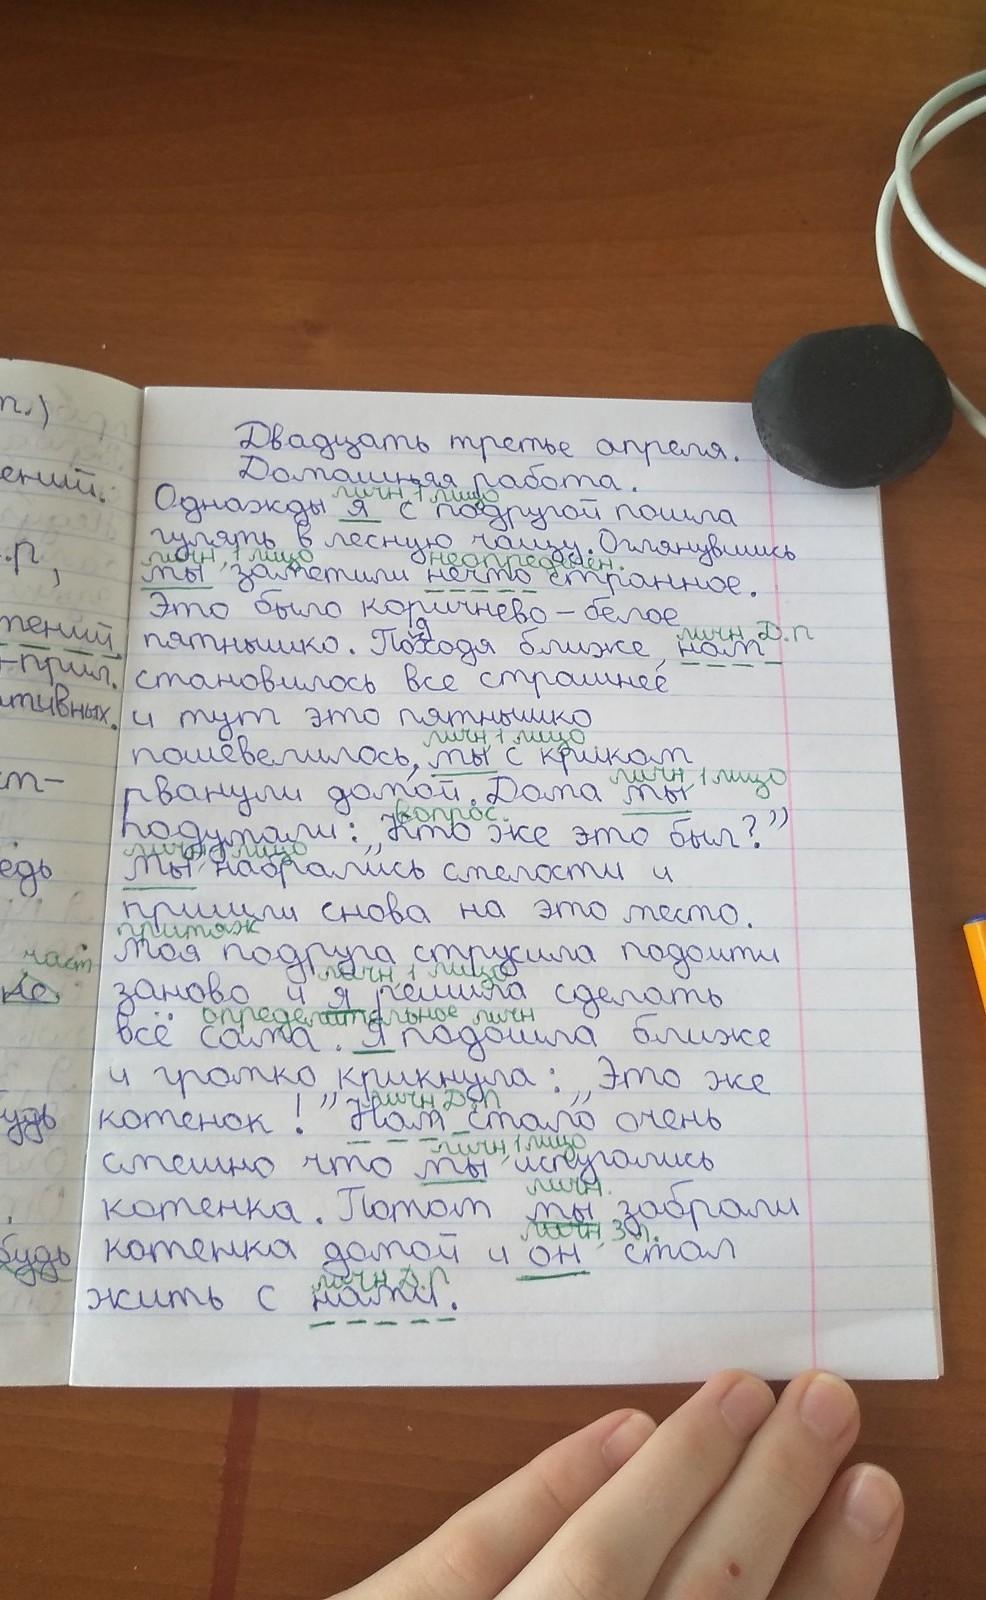 т.)
ений.
.п,
тений.
-прил.
ативных.
ст-
едь
част
не
удь
будь
Двадцать третье апреля.
Домашняя работа.
личн 1 лицо
Однажды я с подругой пошла
гулять в лесную чащу. Оглянувшись
личн, 1 лицо неопределен.
мы заметили нечто странное.
Это было коричнево-белое
личн. Д.п
пятнышко. Подходя ближе, нам
становилось все страшнее
и тут это пятнышко
личн 1 лицо
пошевелилось, мы с криком
личн, 1 лицо
рванули домой. Дома мы
вопрос.
подумали: „Кто же это был?”
личн, 1 лицо
Мы набрались смелости и
пришли снова на это место.
притяж
Моя подруга струсила подойти
личн, 1 лицо
заново и я решила сделать
определительное личн
всё сама. Я подошла ближе
и громко крикнула: „Это же
личн Д.п
котенок!” Нам стало очень
личн 1 лицо
смешно что мы испугались
личн.
котенка. Потом мы забрали
личн 3л.
котенка домой и он стал
личн Д.п
жить с нами.